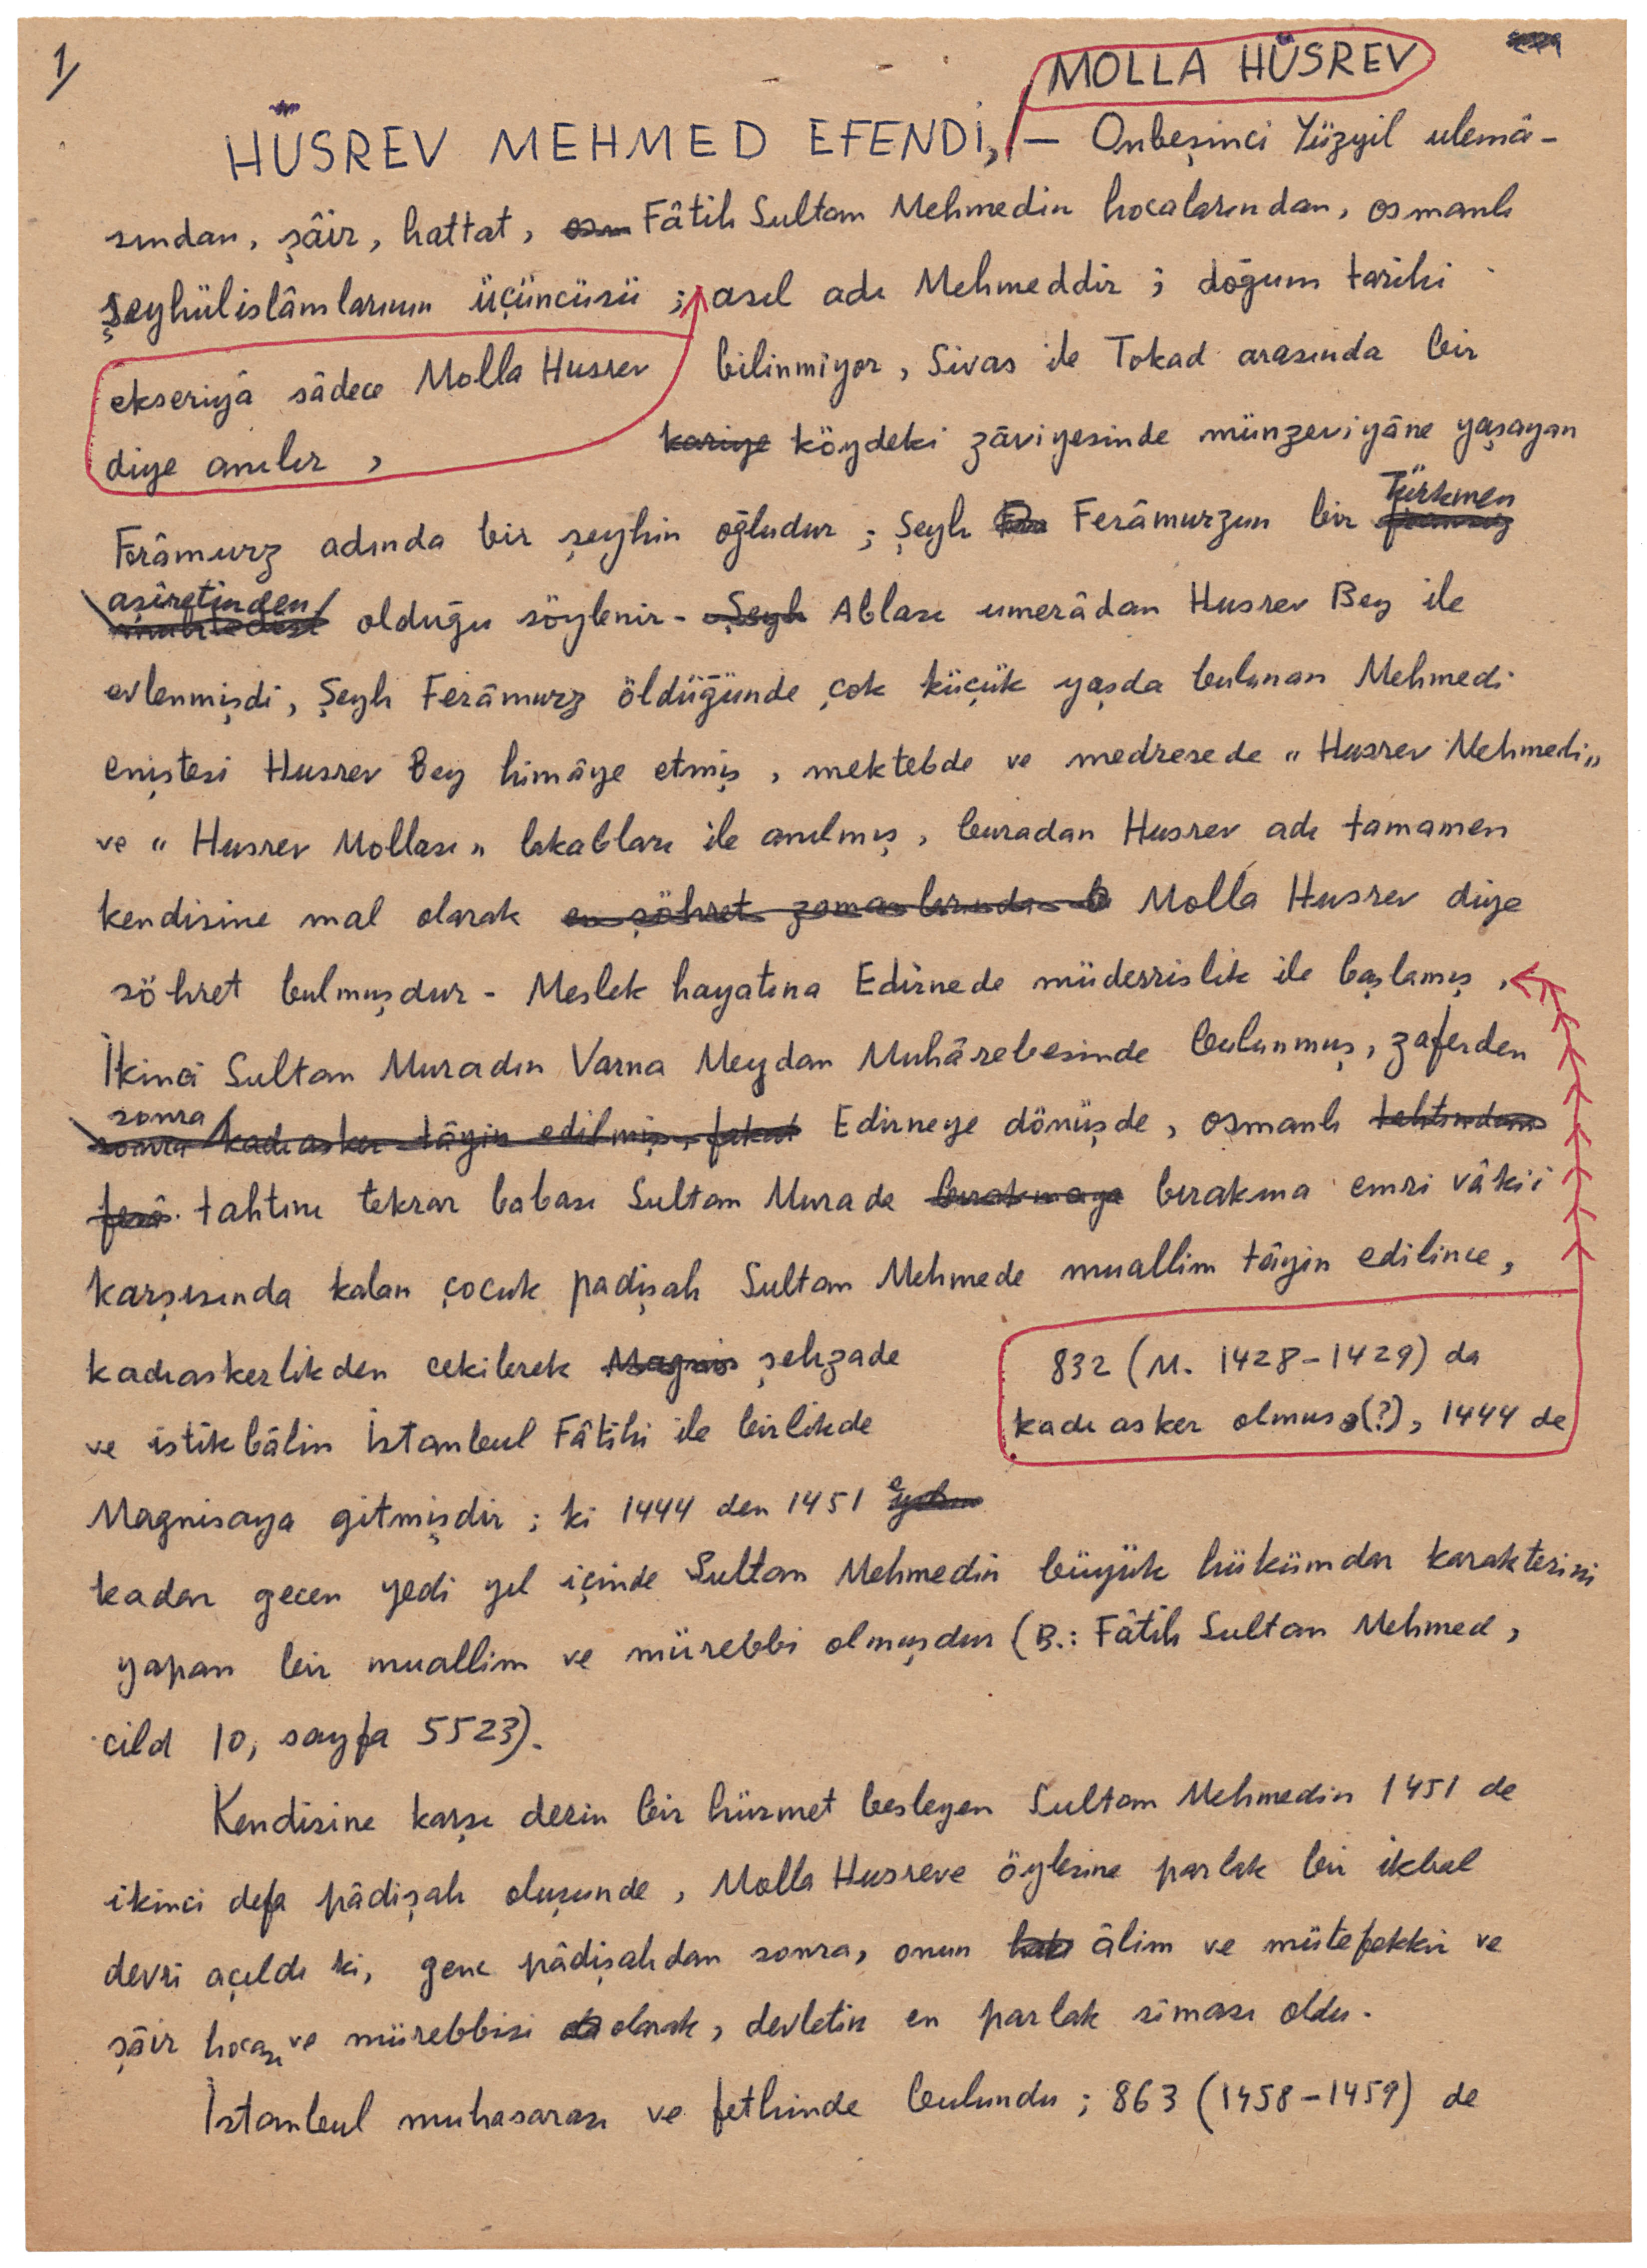 1/
MOLLA HÜSREV
HÜSREV MEHMED EFENDİ, — Onbeşinci Yüzyıl ulemâ-
sından, şâir, hattat, Fâtih Sultan Mehmedin hocalarından, osmanlı
şeyhülislâmlarının üçüncüsü ; asıl adı Mehmeddir ; doğum tarihi
ekseriyâ sâdece Molla Husrev
diye anılır ,
bilinmiyor, Sivas ile Tokad arasında bir
kariye köydeki zâviyesinde münzeviyâne yaşayan
Ferâmurz adında bir şeyhin oğludur ; Şeyh Ferâmurzun bir Türkmen
aşiretinden olduğu söylenir - Şeyh Ablası umerâdan Husrev Bey ile
evlenmişdi, Şeyh Ferâmurz öldüğünde çok küçük yaşda bulunan Mehmedi
eniştesi Husrev Bey himâye etmiş , mektebde ve medresede " Husrev Mehmedi "
ve " Husrev Mollası " lakabları ile anılmış , buradan Husrev adı tamamen
kendisine mal olarak en şöhret zamanlarında b Molla Husrev diye
şöhret bulmuşdur - Meslek hayatına Edirnede müderrislik ile başlamış ,
İkinci Sultan Muradın Varna Meydan Muhârebesinde bulunmuş, zaferden
sonra
sonra kadıasker tâyin edilmiş, fakat Edirneye dönüşde , osmanlı tahtından
tahtını tekrar babası Sultan Murada bırakmaya bırakma emri vâkii
karşısında kalan çocuk padişah Sultan Mehmede muallim tâyin edilince ,
kadıaskerlikden çekilerek Magnis şehzade
ve istikbâlin İstanbul Fâtihi ile birlikde
832 (M. 1428-1429) da
kadıasker olmuş (?), 1444 de
Magnisaya gitmişdir ; ki 1444 den 1451 e
kadar geçen yedi yıl içinde Sultan Mehmedin büyük hükümdar karakterini
yapan bir muallim ve mürebbi olmuşdur (B.: Fâtih Sultan Mehmed ,
cild 10, sayfa 5523).
Kendisine karşı derin bir hürmet besleyen Sultan Mehmedin 1451 de
ikinci defa pâdişah oluşunda , Molla Husreve öylesine parlak bir ikbal
devri açıldı ki, genc pâdişahdan sonra, onun âlim ve mütefekkir ve
şâir hocası ve mürebbisi olarak, devletin en parlak sîması oldu.
İstanbul muhasarası ve fethinde bulundu ; 863 (1458-1459) de